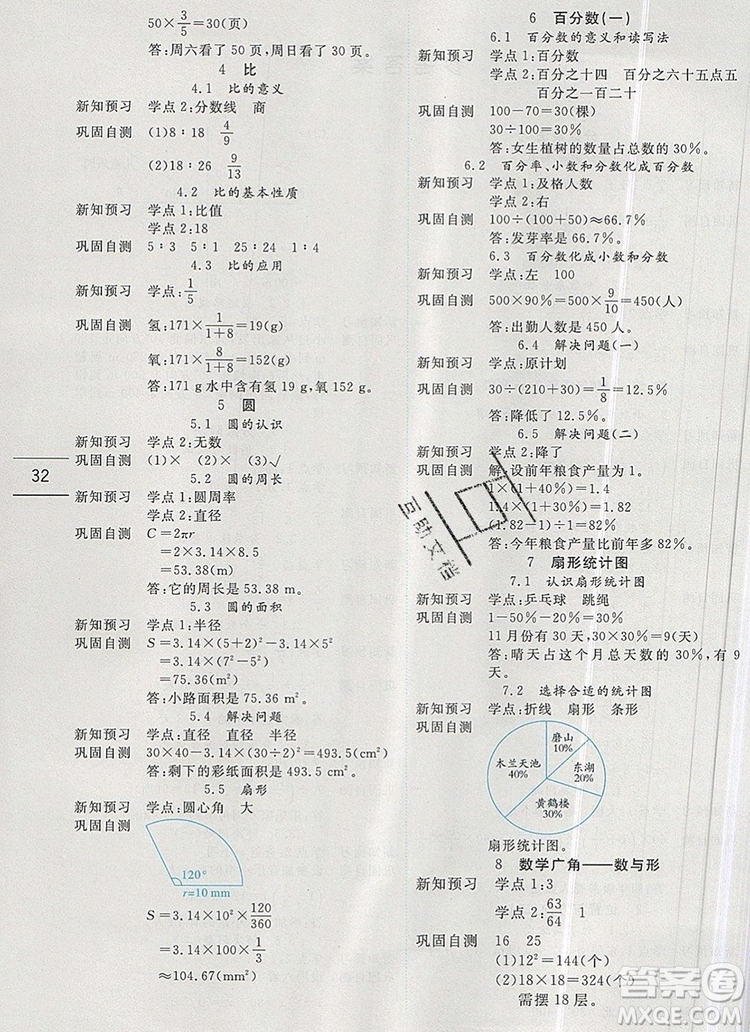 50×3/5=30(页)
答:周六看了 50 页,周日看了 30 页。
4 比
4.1 比的意义
新知预习 学点 2:分数线 商
巩固自测 (1)8∶18 4/9
(2)18∶26 9/13
4.2 比的基本性质
新知预习 学点 1:比值
学点 2:18
巩固自测 5∶3 5∶1 25∶24 1∶4
4.3 比的应用
新知预习 学点:1/5
巩固自测 氢:171×1/(1+8)=19(g)
氧:171×8/(1+8)=152(g)
答:171 g 水中含有氢 19 g,氧 152 g。
5 圆
5.1 圆的认识
新知预习 学点 2:无数
巩固自测 (1)× (2)× (3)√
5.2 圆的周长
新知预习 学点 1:圆周率
学点 2:直径
巩固自测 C=2πr
=2×3.14×8.5
=53.38(m)
答:它的周长是 53.38 m。
5.3 圆的面积
新知预习 学点 1:半径
巩固自测 S=3.14×(5+2)²-3.14×5²
=3.14×(7²-5²)
=75.36(m²)
答:小路面积是 75.36 m²。
5.4 解决问题
新知预习 学点:直径 直径 半径
巩固自测 30×40-3.14×(30÷2)²=493.5(cm²)
答:剩下的彩纸面积是 493.5 cm²。
5.5 扇形
新知预习 学点:圆心角 大
巩固自测
120°
r=10 mm
S=3.14×10²×120/360
=3.14×100×1/3
≈104.67(mm²)
32
6 百分数(一)
6.1 百分数的意义和读写法
新知预习 学点 1:百分数
学点 2:百分之十四 百分之六十五点五
百分之一百二十
巩固自测 100-70=30(棵)
30÷100=30%
答:女生植树的数量占总数的 30%。
6.2 百分率、小数和分数化成百分数
新知预习 学点 1:及格人数
学点 2:右
巩固自测 100÷(100+50)≈66.7%
答:发芽率是 66.7%。
6.3 百分数化成小数和分数
新知预习 学点:左 100
巩固自测 500×90%=500×9/10=450(人)
答:出勤人数是 450 人。
6.4 解决问题(一)
新知预习 学点:原计划
巩固自测 30÷(210+30)=1/8=12.5%
答:降低了 12.5%。
6.5 解决问题(二)
新知预习 学点 2:降了
巩固自测 解:设前年粮食产量为 1。
1×(1+40%)=1.4
1.4×(1+30%)=1.82
(1.82-1)÷1=82%
答:今年粮食产量比前年多 82%。
7 扇形统计图
7.1 认识扇形统计图
新知预习 学点:乒乓球 跳绳
巩固自测 1-50%-20%=30%
11 月份有 30 天 30×30%=9(天)
答:晴天占这个月总天数的 30%,有 9
天。
7.2 选择合适的统计图
新知预习 学点:折线 扇形 条形
巩固自测
磨山
10%
木兰天池
40%
东湖
20%
黄鹤楼
30%
扇形统计图。
8 数学广角——数与形
新知预习 学点 1:3
学点 2:63/64 1
巩固自测 16 25
(1)12²=144(个)
(2)18×18=324(个)
需摆 18 层。
互助文档
答案圈
MXQE.COM